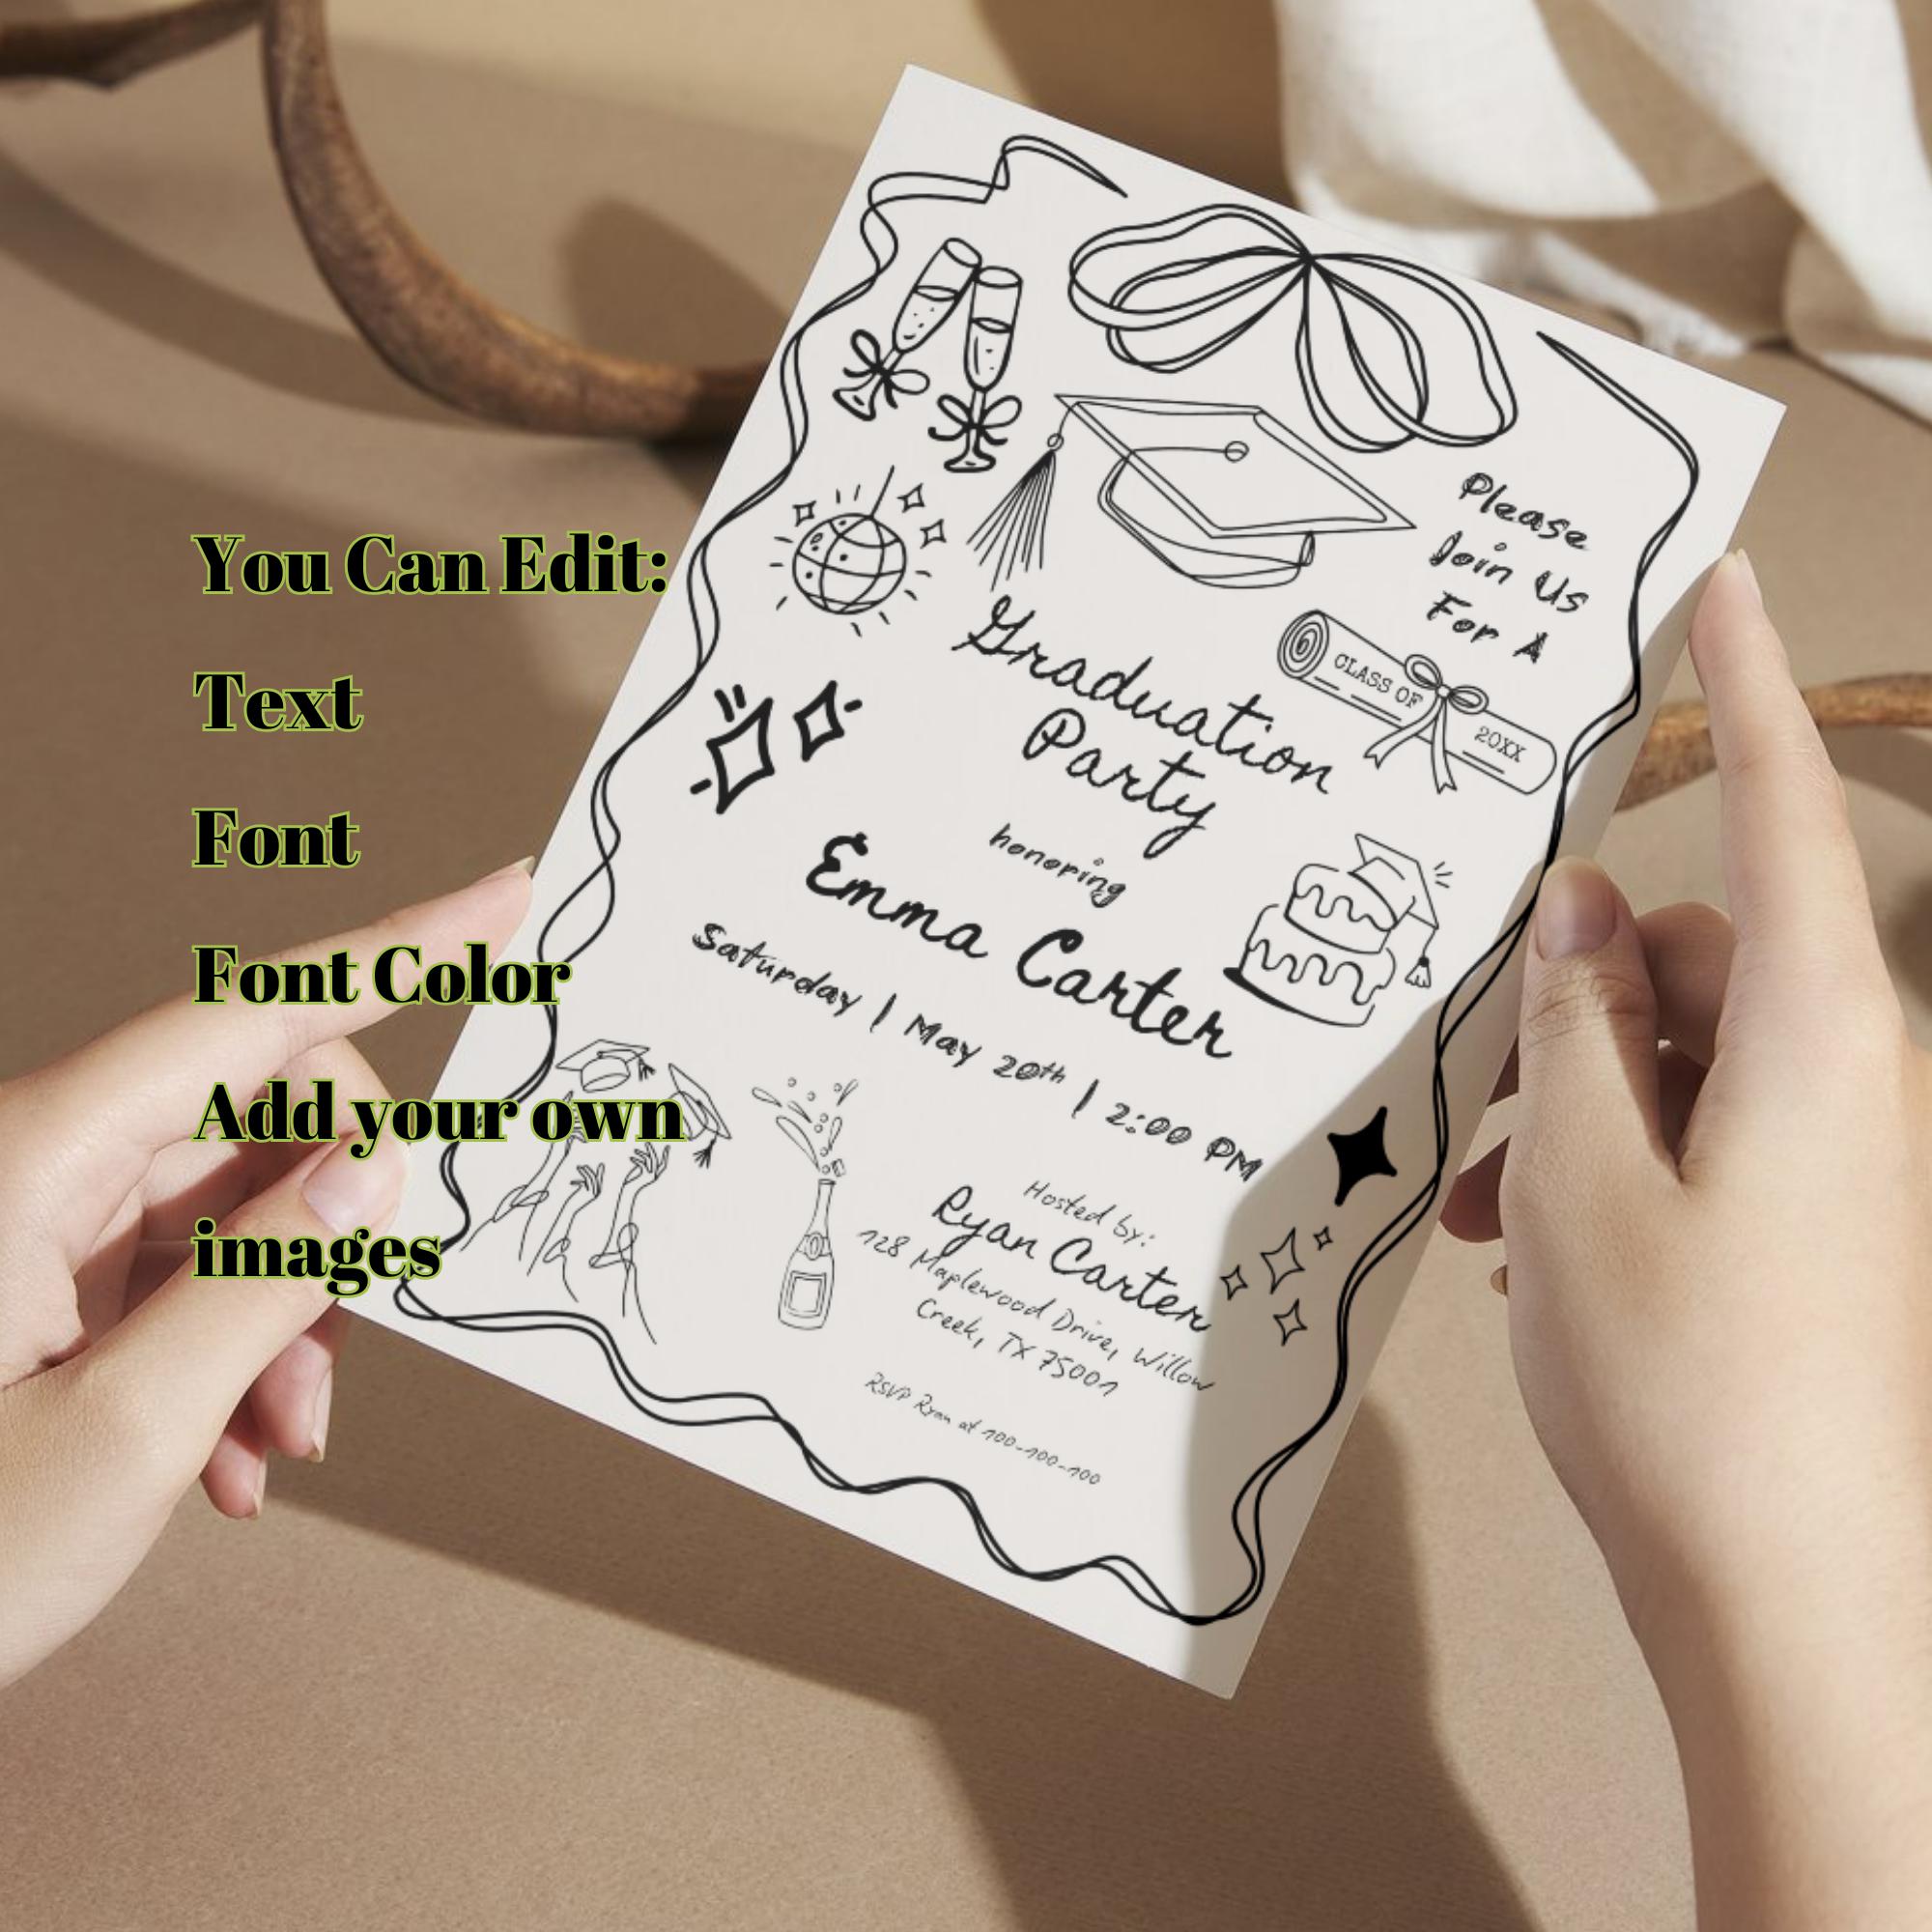 You Can Edit:
Text
Font
Font Color
Add your own
images
Please
Join Us
For A
CLASS OF 20XX
Graduation
Party
honoring
Emma Carter
Saturday | May 20th | 2:00 PM
Hosted by:
Ryan Carter
128 Maplewood Drive, Willow
Creek, TX 75001
RSVP Ryan at 100-100-100